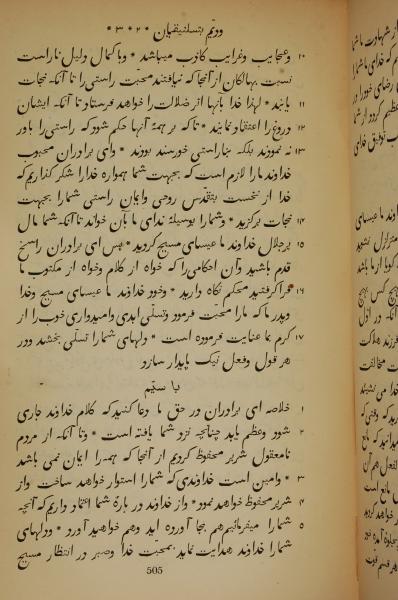 دویم بتسلنیقیان * ۲ * ۳ *
۱۰ وعجایب وغرایب کاذب میباشد * وبا کمال دلیل ناراست
نسبت بهالکان از آنجا که نیافتند محبّت راستی را تا آنکه نجات
۱۱ یابند * لهذا خدا بآنها اثر ضلالت را خواهد فرستاد تا آنکه ایشان
۱۲ دروغ را اعتقاد نمایند * تا که بر همهٔ آنها حکم شود که راستی را باور
۱۳ نه نمودند بلکه بناراستی خورسند بودند * وای برادران محبوب
خداوند مارا لازم است که بجهت شما همواره خدا را شکر گذاریم که
خدا از نخست بتقدّس روحی وایمان راستی شمارا بجهت
۱۴ نجات برگزید * وشمارا بوسیلهٔ ندای ما بآن خواند تا آنکه شما مال
۱۵ برجلال خداوند ما عیسای مسیح گردید * پس ای برادران راسخ
قدم باشید وآن احکامی را که خواه از کلام وخواه از مکتوب ما
۱۶ فرا گرفتید محکم نگاه دارید * وخود خداوند ما عیسای مسیح وخدا
وپدر ما که مارا محبّت فرمود وتسلّی ابدی وامیدواری خوب را از
۱۷ کرم بما عنایت فرموده است * دلهای شمارا تسلّی بخشد ودر
هر قول وفعل نیک پایدار سازد
باب سیّم
۱ خلاصه ای برادران در حق ما دعا کنید که کلام خداوند جاری
۲ شود وعظم یابد چنانچه نزد شما یافته است * وتا آنکه از مردم
نامعقول شریر محفوظ گردیم از آنجا که همه را ایمان نمی باشد
۳ * وامین است خداوندی که شمارا استوار خواهد ساخت واز
۴ شریر محفوظ خواهد نمود * واز خداوند در بارهٔ شما اعتماد داریم که آنچه
۵ شمارا میفرمائیم هم بجا آورده اید وهم خواهید آورد * ودلهای
شمارا خداوند هدایت نماید بمحبّت خدا وصبر در انتظار مسیح
505